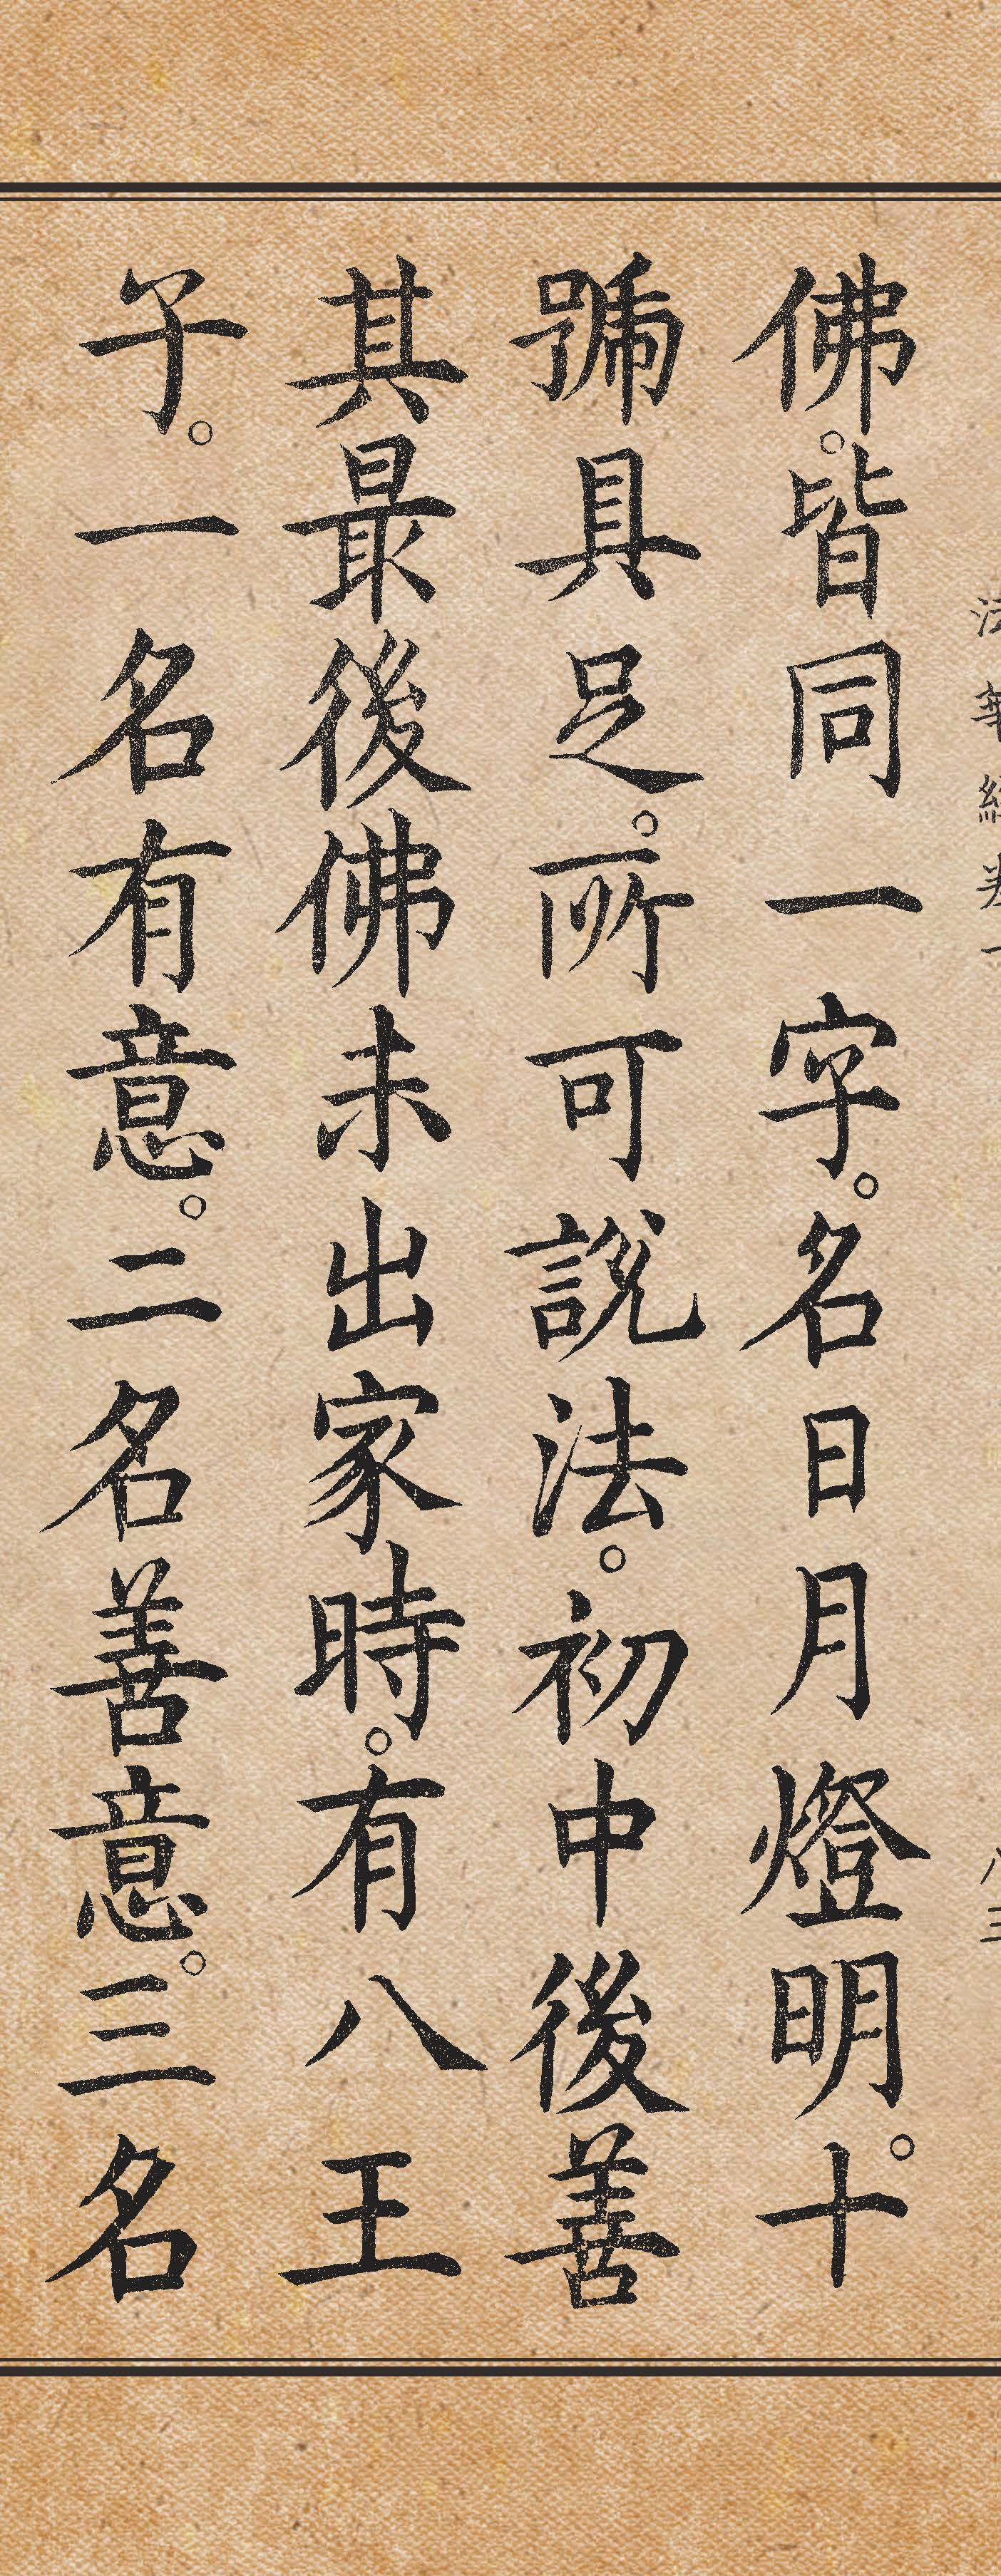 法華經卷一 八三
佛。皆同一字。名日月燈明。十
號具足。所可說法。初中後善
其最後佛未出家時。有八王
子。一名有意。二名善意。三名